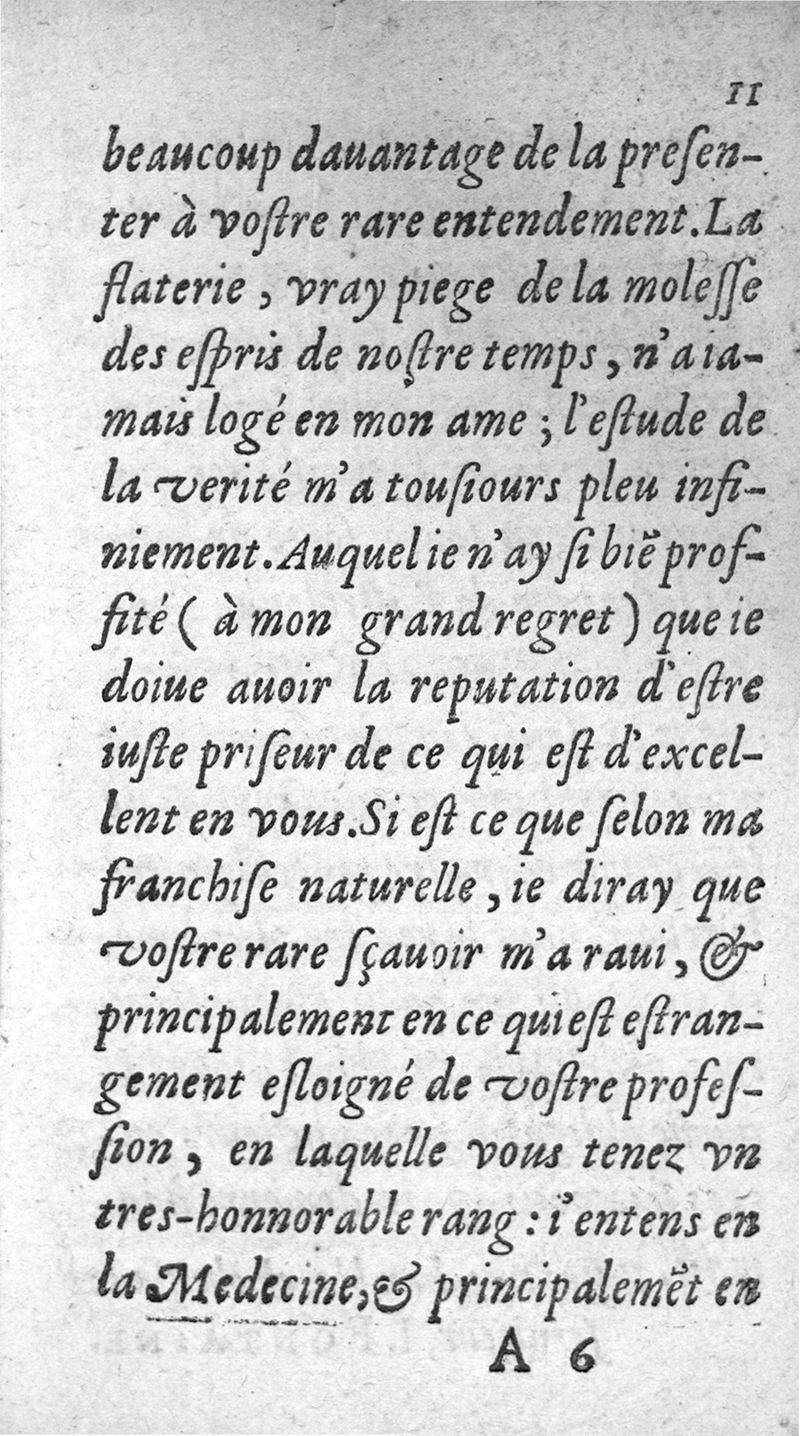 11
beaucoup dauantage de la preſen-
ter à voſtre rare entendement. La
flaterie, vray piege de la moleſſe
des eſpris de noſtre temps, n'a ia-
mais logé en mon ame; l'eſtude de
la verité m'a touſiours pleu infi-
niement. Auquel ie n'ay ſi biẽ prof-
fité (à mon grand regret) que ie
doiue auoir la reputation d'eſtre
iuſte priſeur de ce qui eſt d'excel-
lent en vous. Si eſt ce que ſelon ma
franchiſe naturelle, ie diray que
voſtre rare ſçauoir m'a raui, &
principalement en ce qui eſt eſtran-
gement eſloigné de voſtre profeſ-
ſion, en laquelle vous tenez vn
tres-honnorable rang: i'entens en
la Medecine, & principalemẽt en
A 6